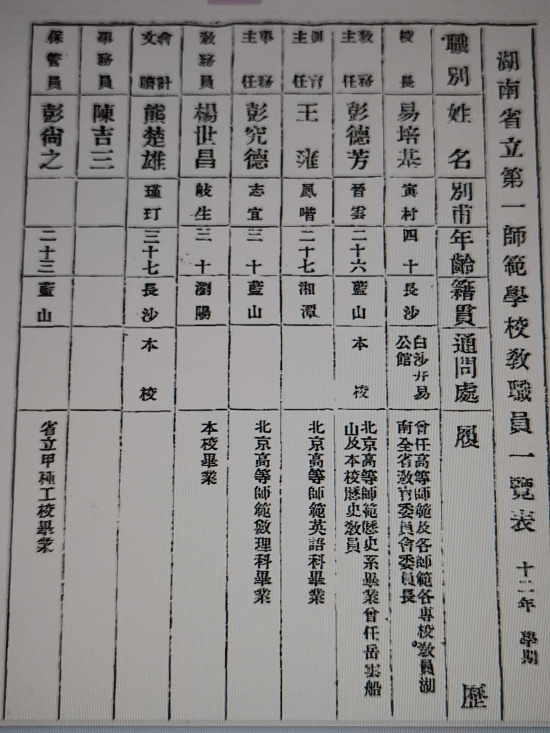 湖南省立第一師範學校敎職員一覽表 十二年 學期
職別 姓名 別甫 年齡 籍貫 通問處 履歷
校長 易培基 寅村 四十 長沙 白沙井易公館 曾任高等師範及各師範各專校敎員湖南全省敎育委員會委員長
敎務主任 彭德芳 晉雲 二十六 藍山 本校 北京高等師範歷史系畢業曾任岳雲船山及本校歷史敎員
訓育主任 王 鳳喈 二十七 湘潭 北京高等師範英語科畢業
事務主任 彭究德 志宜 三十 藍山 北京高等師範數理科畢業
敎務員 楊世昌 岐生 三十 瀏陽 本校畢業
會計文牘 熊楚雄 瑾玎 三十七 長沙 本校
事務員 陳吉三
保管員 彭尙之 二十三 藍山 省立甲種工校畢業